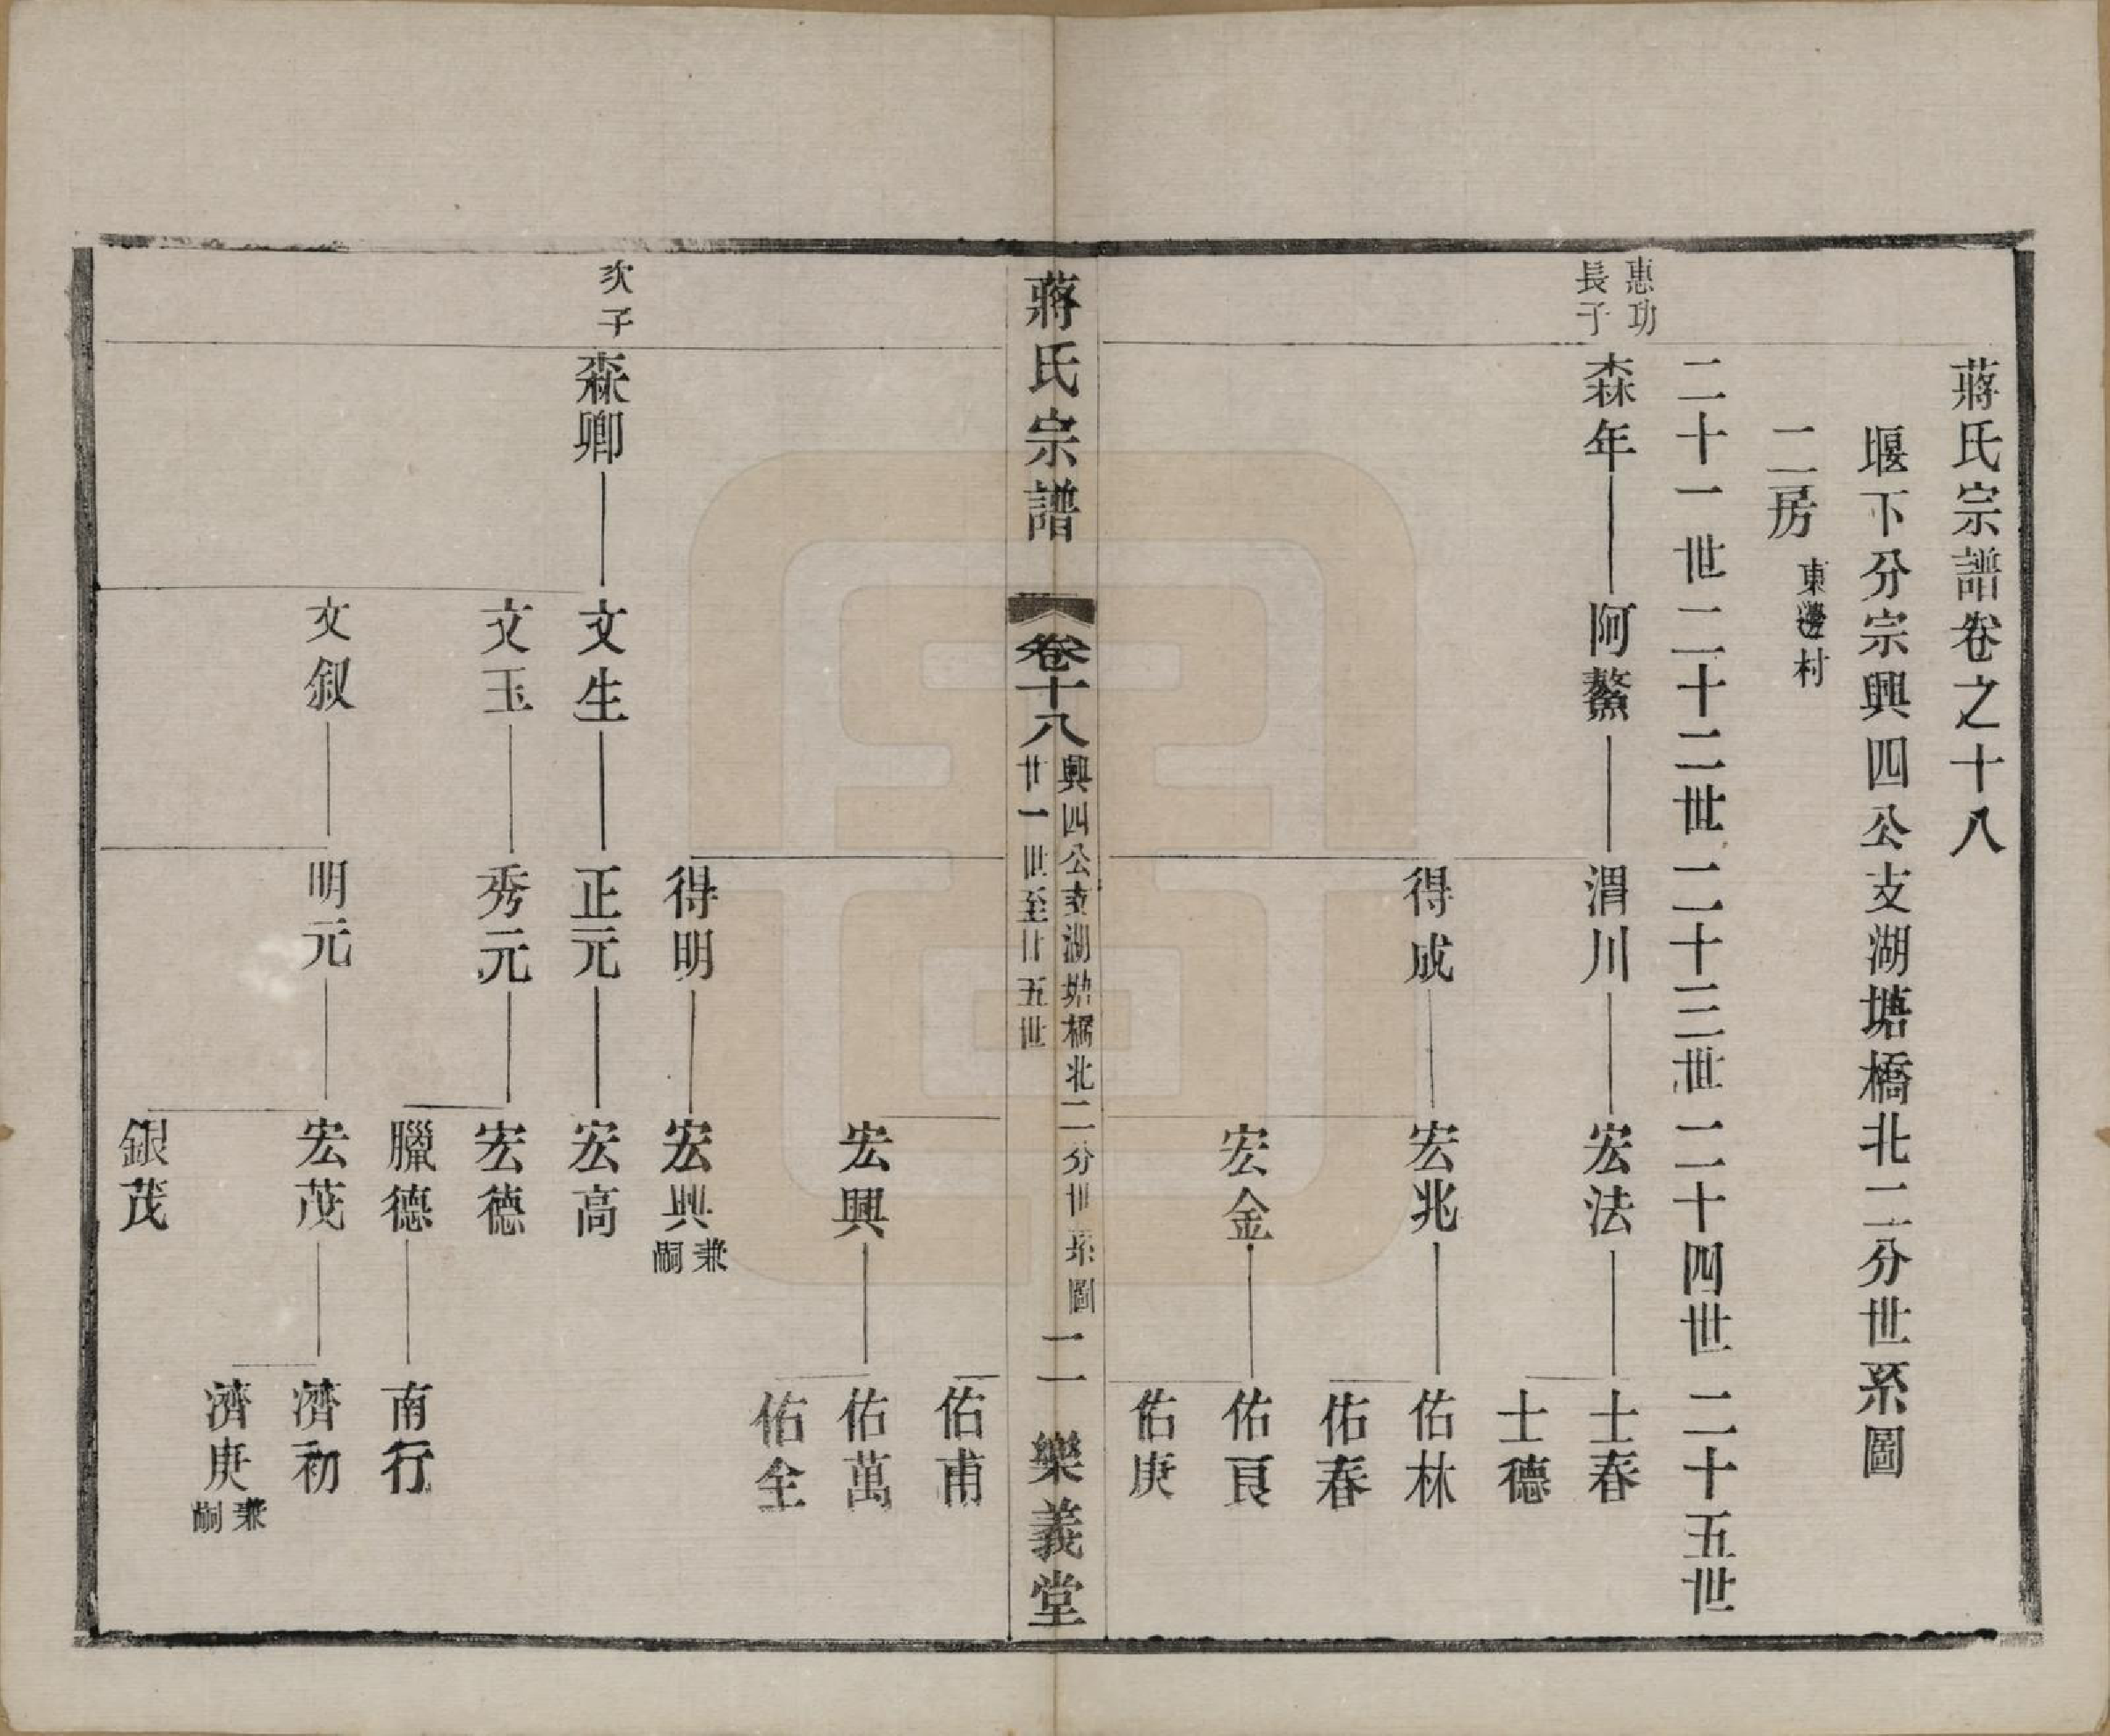 蔣氏宗譜卷之十八
堰下分宗興四公支湖塘橋北二分世系圖
二房 東邊村
二十一世 二十二世 二十三世 二十四世 二十五世
惠功
長子
森年 阿鰲 渭川 宏法 士春
士德
得成 宏兆 佑林
佑春
宏金 佑良
佑庚
蔣氏宗譜 卷十八 興四公支湖塘橋北二分世系圖
廿一世至廿五世
二 樂義堂
佑甫
宏興 佑萬
佑全
得明 宏興 兼
嗣
次子 森卿 文生 正元 宏高
文玉 秀元 宏德
臘德 南行
文叙 明元 宏茂 濟初
濟庚 兼
嗣
銀茂